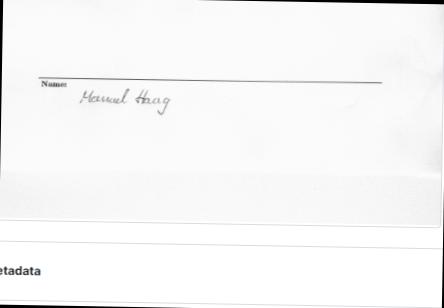 Name:
Manuel Haag
etadata